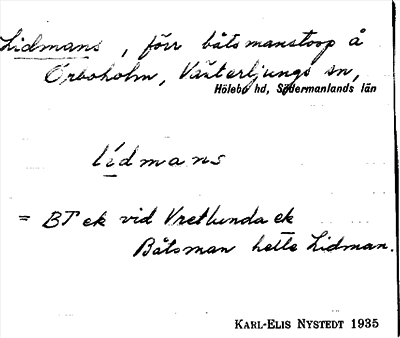 Lidmans, förr båtsmanstorp å
Örboholm, Västerljungs sn,
Hölebo hd, Södermanlands län
lidmans
= BT ek vid Vretlunda ek
Båtsman hette Lidman.
KARL-ELIS NYSTEDT 1935